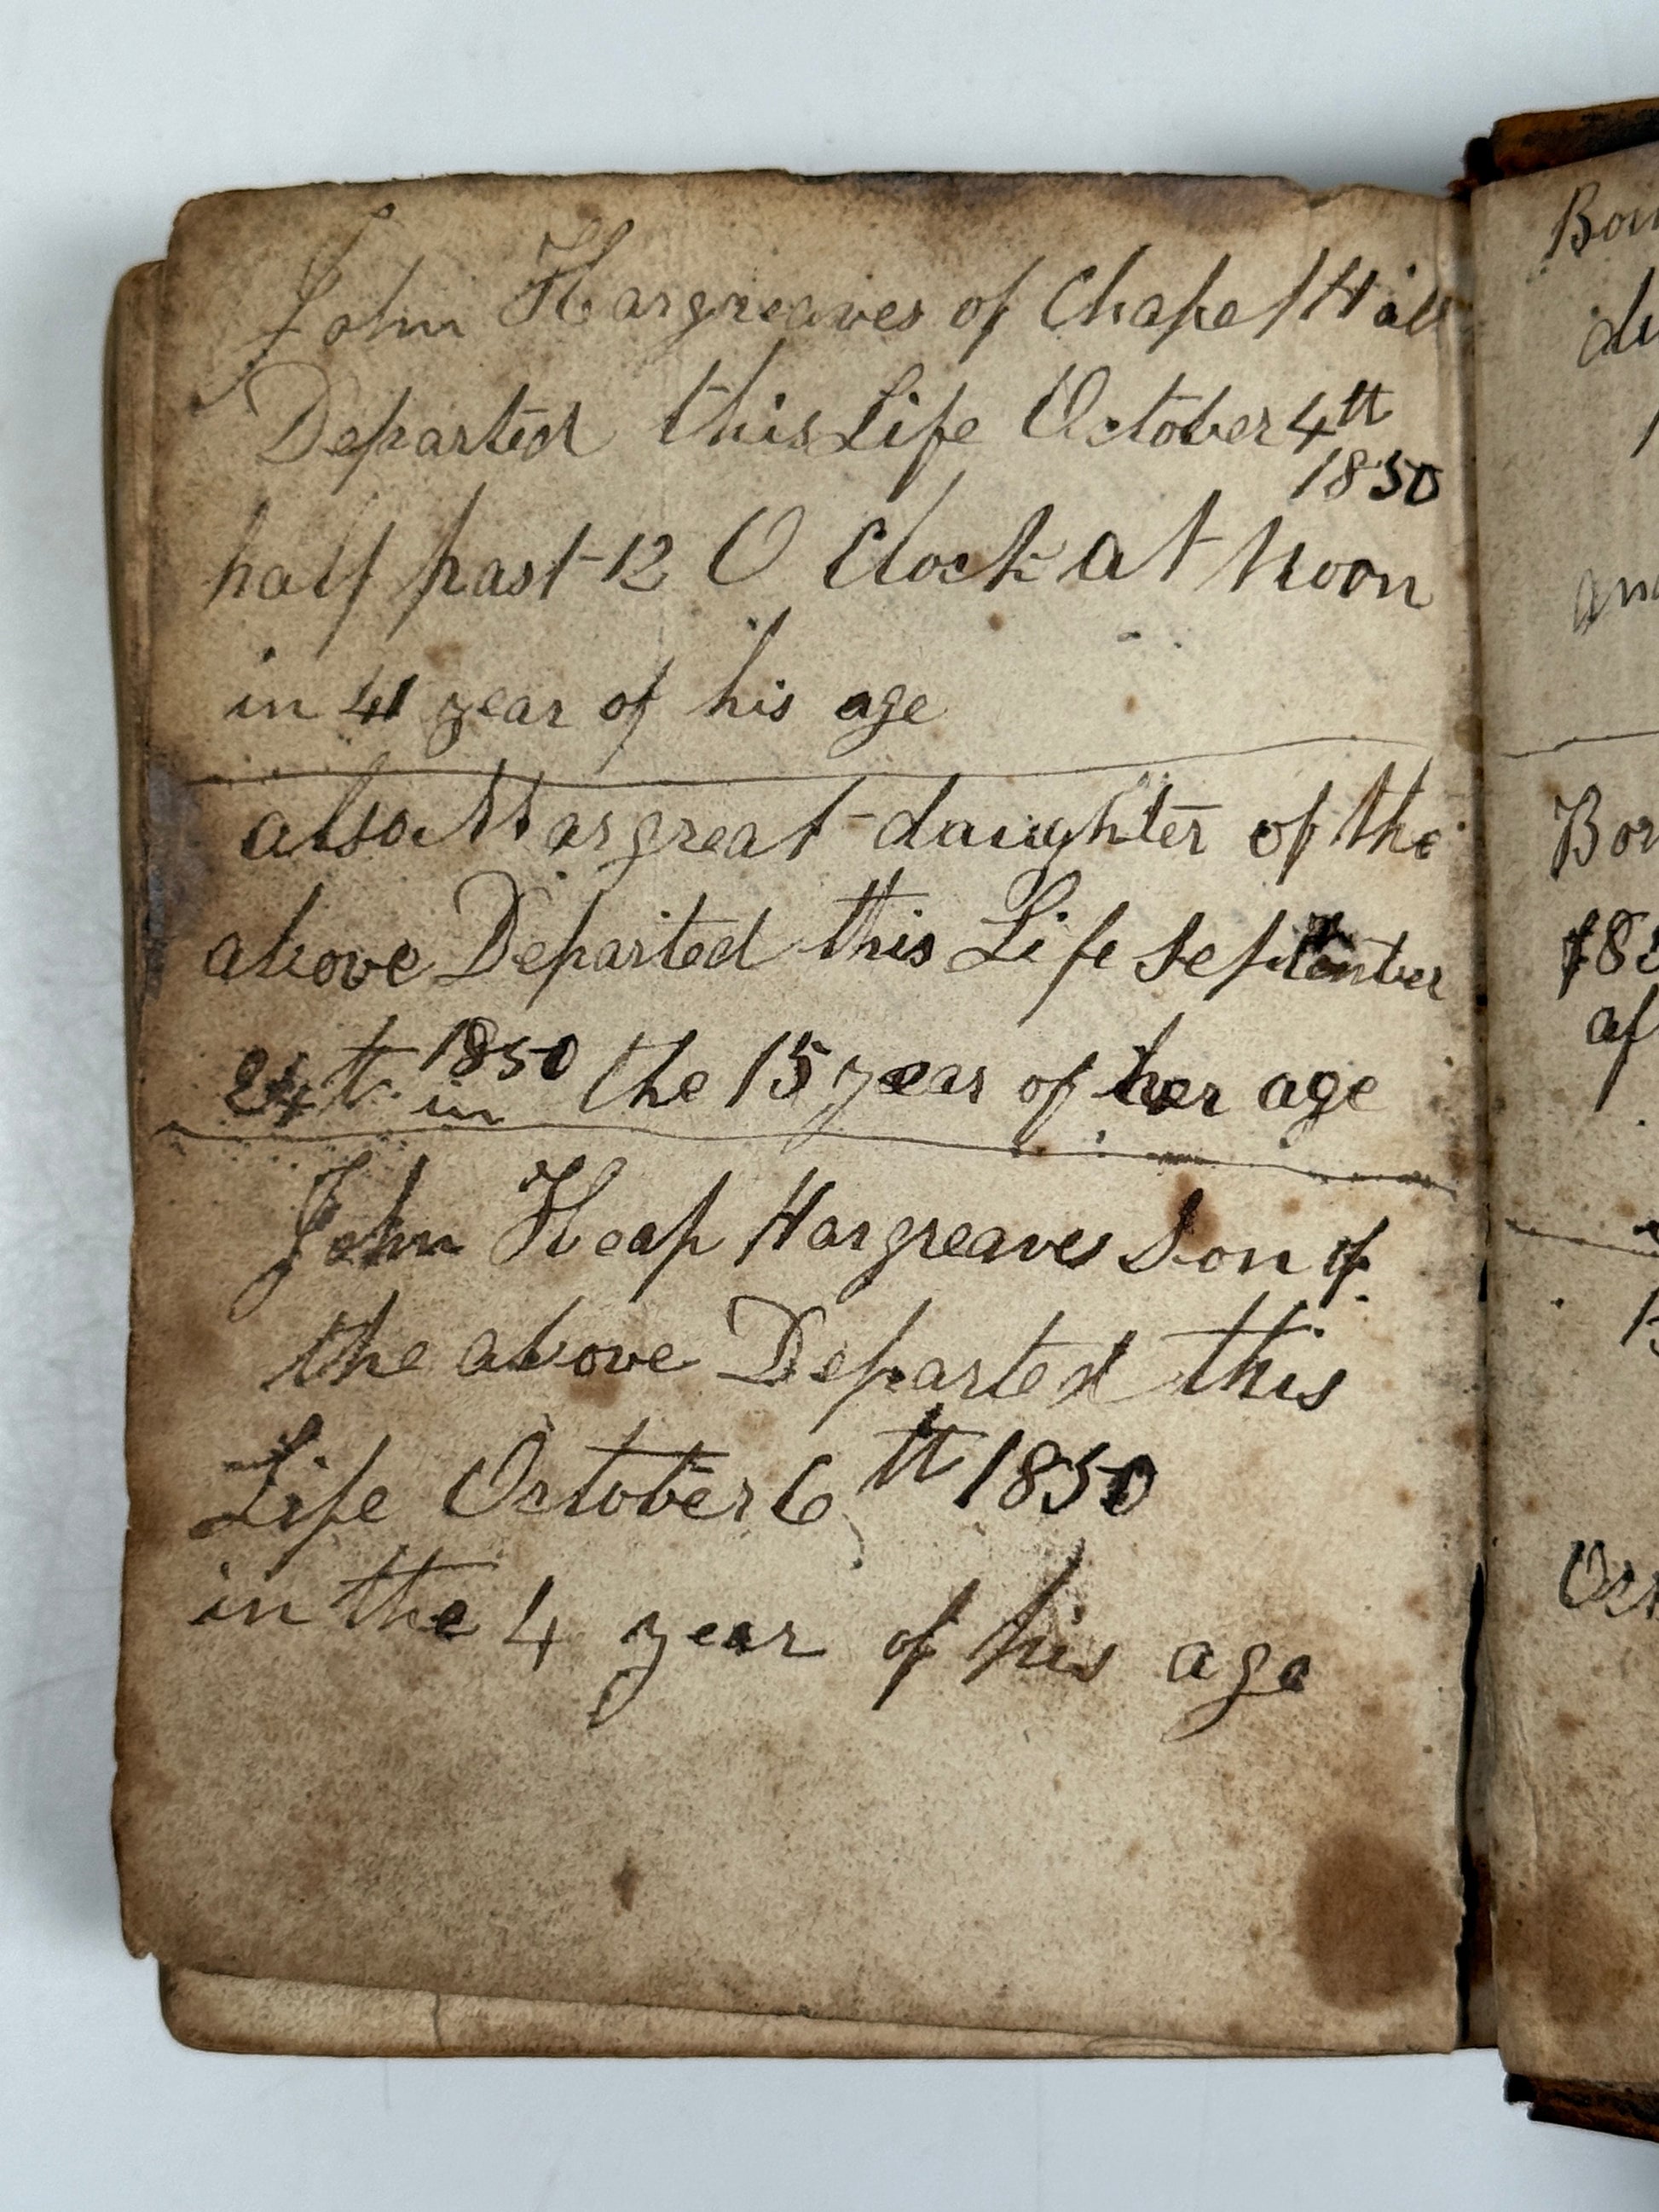 John Hargreaves of Chapel Hill
Departed this Life October 4tt
1850
half past 12 O Clock at Noon
in 41 year of his age
also Margreat daughter of the
above Departed this Life September
24t 1850 in the 15 year of her age
John Heap Hargreaves Son of
the above Departed this
Life October 6tt 1850
in the 4 year of his age
Bor
183
af